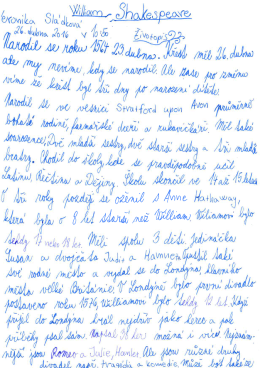 William Shakespeare
Veronika Sládková
26. dubna 2016 v 10:50 Životopis
Narodil se roku 1564 23. dubna. Křest měl 26. dubna
ale my nevíme, kdy se narodil. Ale zase po změnu
víme že křest byl tři dny po narození dítěte.
Narodil se ve vesnici Stratford upon Avon poměrně
bohaté rodině, farmářské dceři a rukavičkáři. Měl také
sourozence. Dvě mladší sestry, dvě starší sestry a tři mladší
bratry. Chodil do školy kde se pravděpodobně učil
Latinu, Řečtinu a Dějiny. Školu skončil ve 14 až 15 letech
O tři roky později se oženil s Anne Hathaway,
která byla o 8 let starší než William. Williamovi bylo
tehdy 18 let. Měli spolu 3 děti. Jedináčka
Susan a dvojčata Judis a Hamneta. Opustil také
své rodné město a vydal se do Londýna, hlavního
města velké Británie. V Londýně bylo první divadlo
postaveno roku 1576, Williamovi bylo tehdy 12 let. Když
přijel do Londýna hrál nejdřív jako herec a pak
příběhy psal sám. Napsal 38 her možná i více. Nejznám-
nější jsou Romeo a Julie, Hamlet. Ale jsou různé druhy
divadel např. tragédie a komedie. Může být také ze